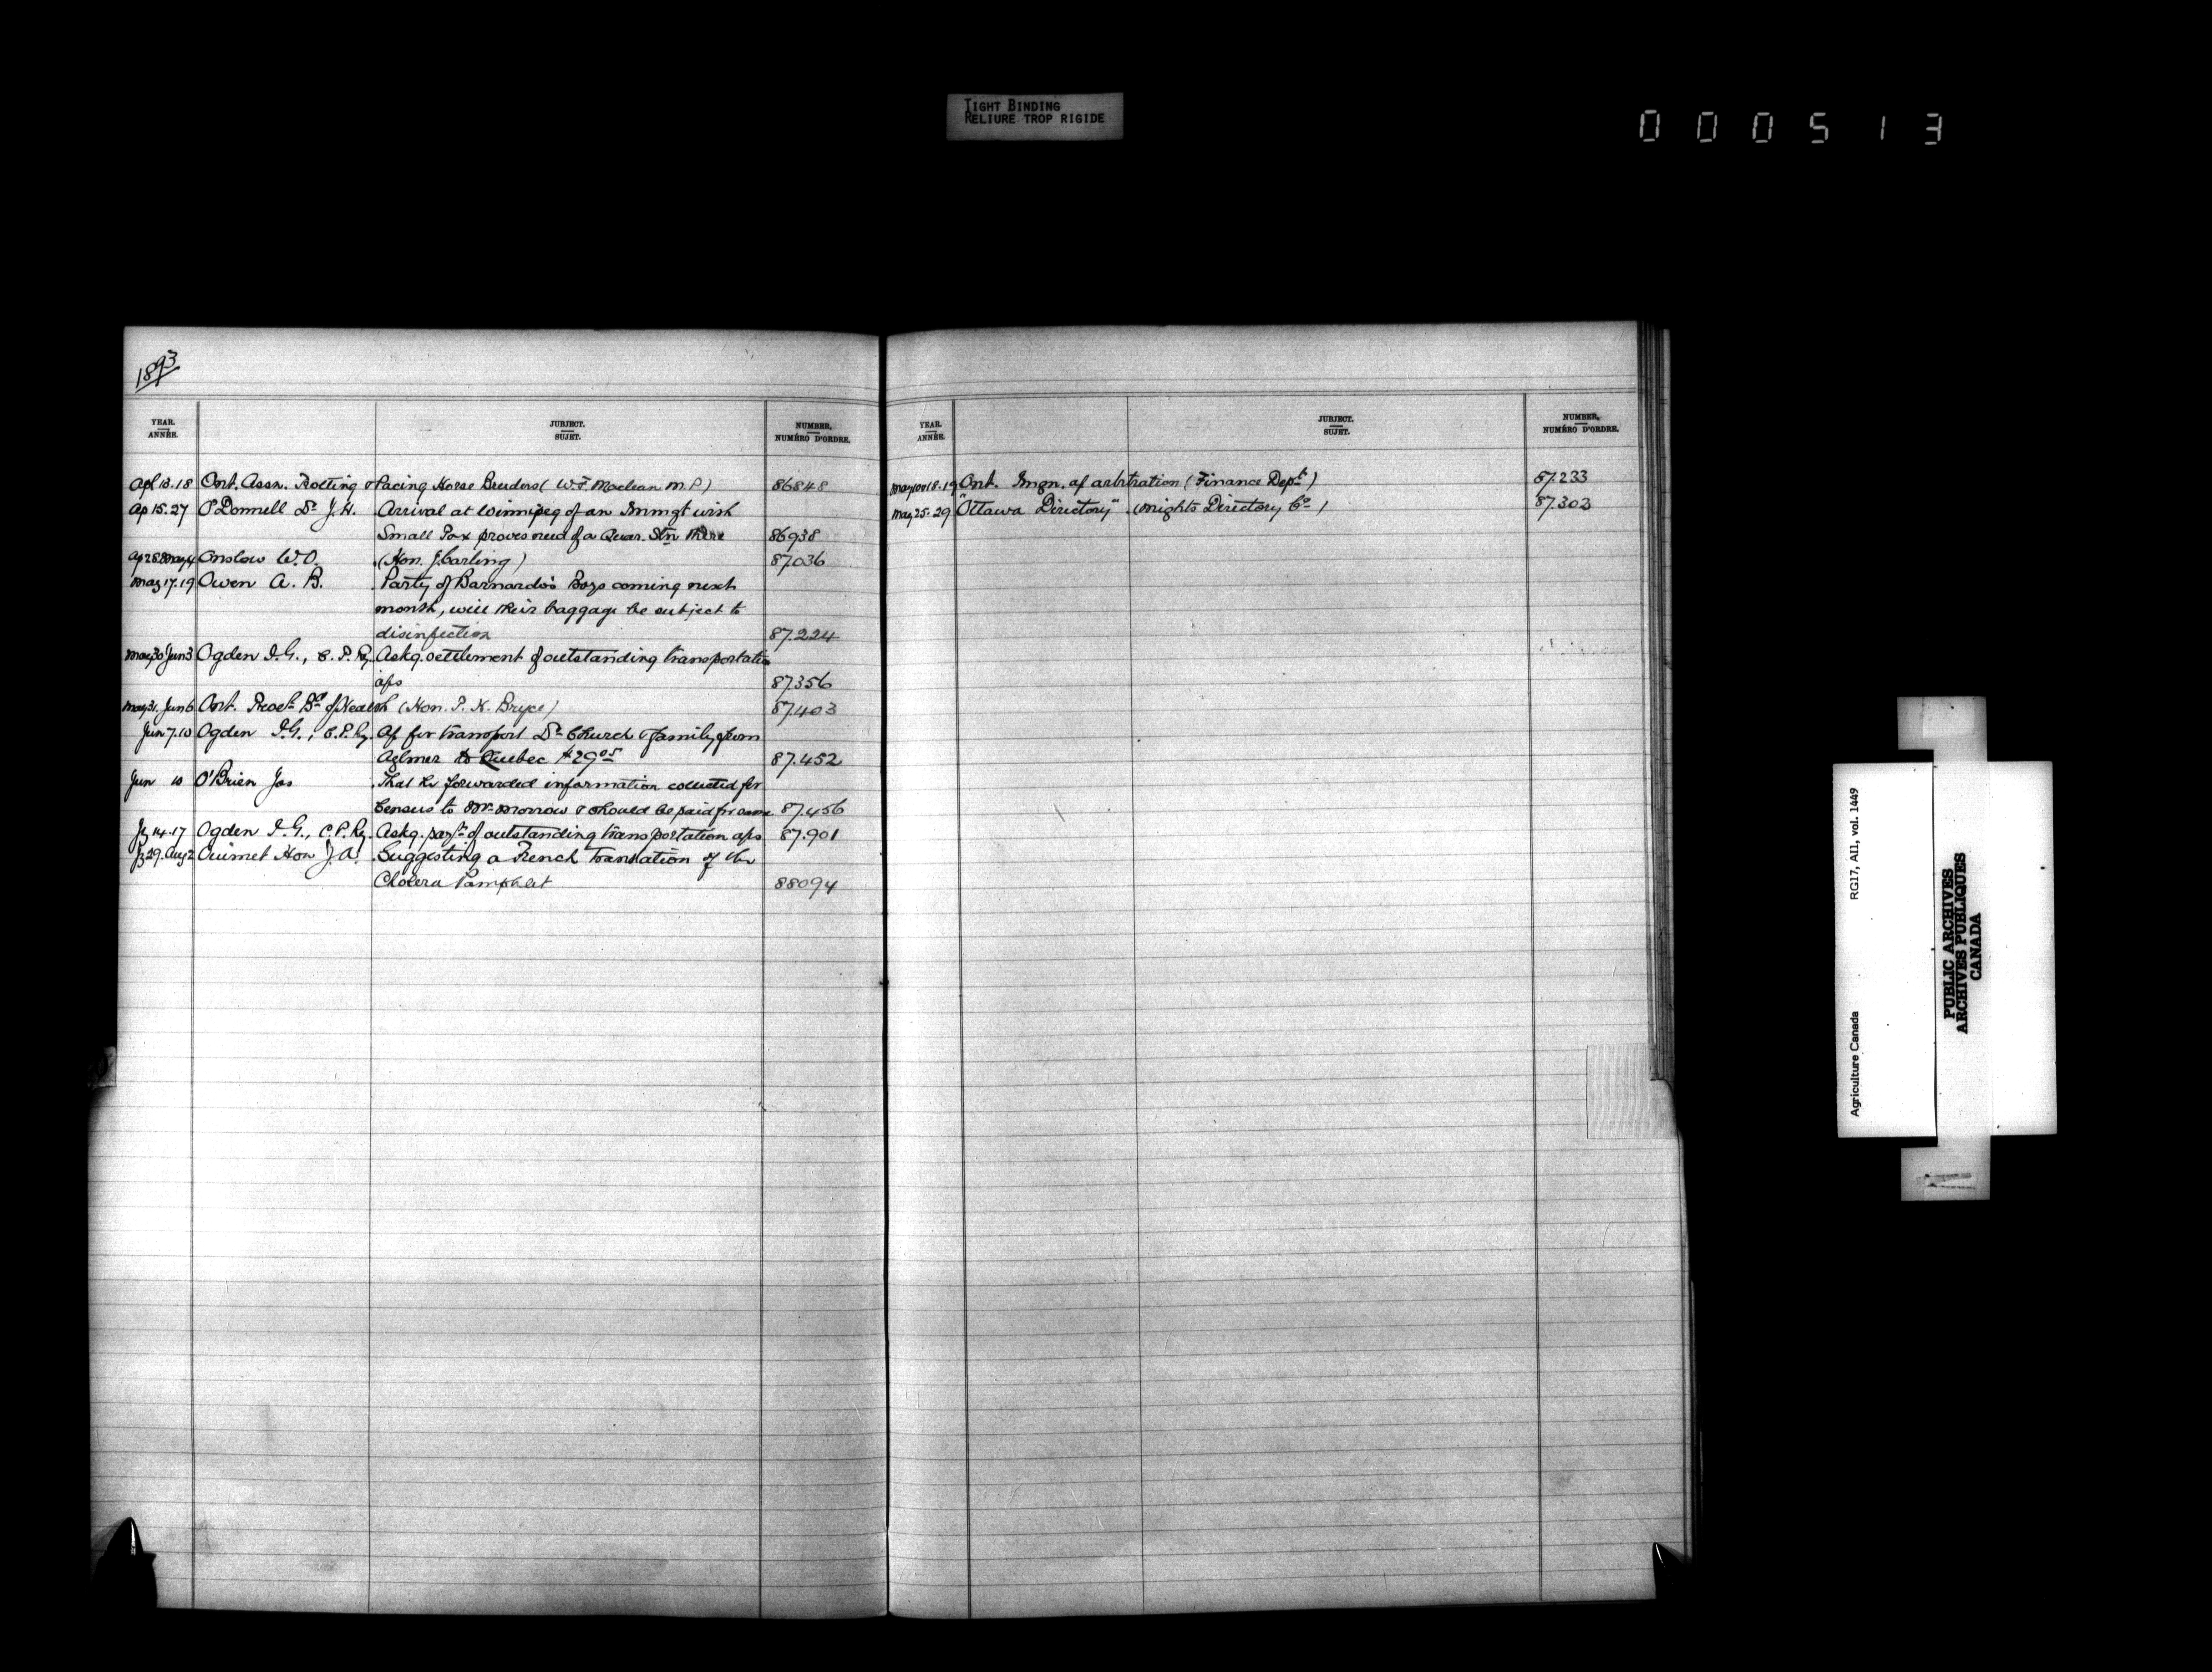 TIGHT BINDING
RELIURE TROP RIGIDE
000513
1893
YEAR. ANNÉE. JURJECT. SUJET. NUMBER, NUMÉRO D'ORDRE.
Apl 13.18 Ont. Assn. Trotting & Pacing Horse Breeders (W.F. Maclean M.P.) 86848
Ap 15.27 O'Donnell Dr J.H. Arrival at Winnipeg of an Immgt with
Small Pox proves need of a Quar. Stn there 86938
Ap 28 May 4 Onslow W.O. (Hon. J. Carling) 87036
May 17.19 Owen A. B. Party of Barnardo's Boys coming next
month, will their baggage be subject to
disinfection 87.224
May 30 Jun 3 Ogden I.G., C.P.Ry. Askg. settlement of outstanding transportation
a/cs 87356
May 31. Jun 6 Ont. Provl. Bd of Health (Hon. P. H. Bryce) 87403
Jun 7.10 Ogden I.G., C.P.Ry. A/c for transport Dr Church & family from
Aylmer to Quebec $29.05 87.452
Jun 10 O'Brien Jas That he forwarded information collected for
Census to Mr. Morrow & should be paid for same 87.456
Jy 14.17 Ogden I.G., C.P.Ry. Askg. payt. of outstanding transportation a/cs 87.901
Jy 29. Aug 2 Ouimet Hon J.A. Suggesting a French translation of the
Cholera Pamphlet 88094
YEAR. ANNÉE. JURJECT. SUJET. NUMBER, NUMÉRO D'ORDRE.
May 18.19 Ont. Imgn. a/c arbitration (Finance Dept.) 87.233
May 25.29 "Ottawa Directory" (Wrights Directory Co.) 87.303
Agriculture Canada RG17, AI1, vol. 1449
PUBLIC ARCHIVES
ARCHIVES PUBLIQUES
CANADA